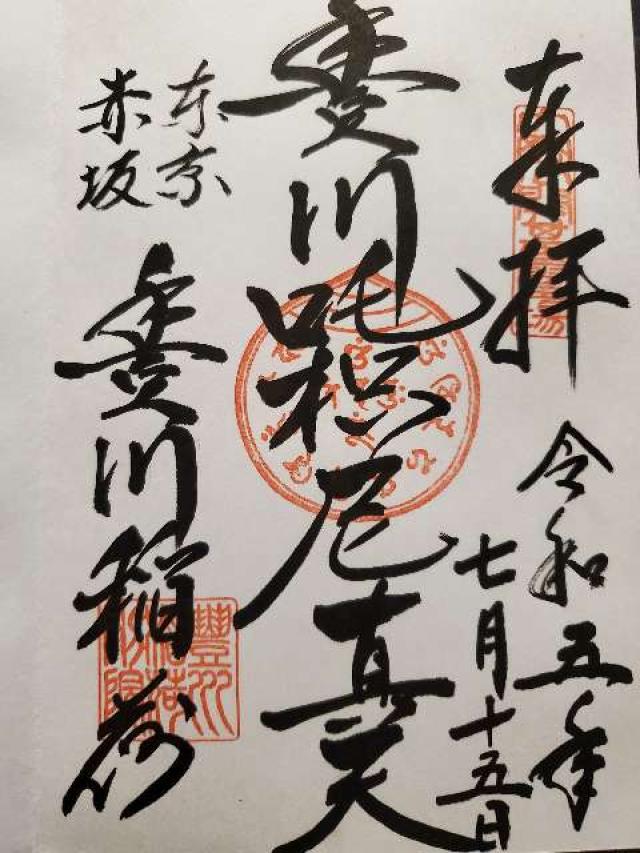 来拝
令和五年
七月十五日
豊川吒枳尼真天
東京
赤坂
豊川稲荷